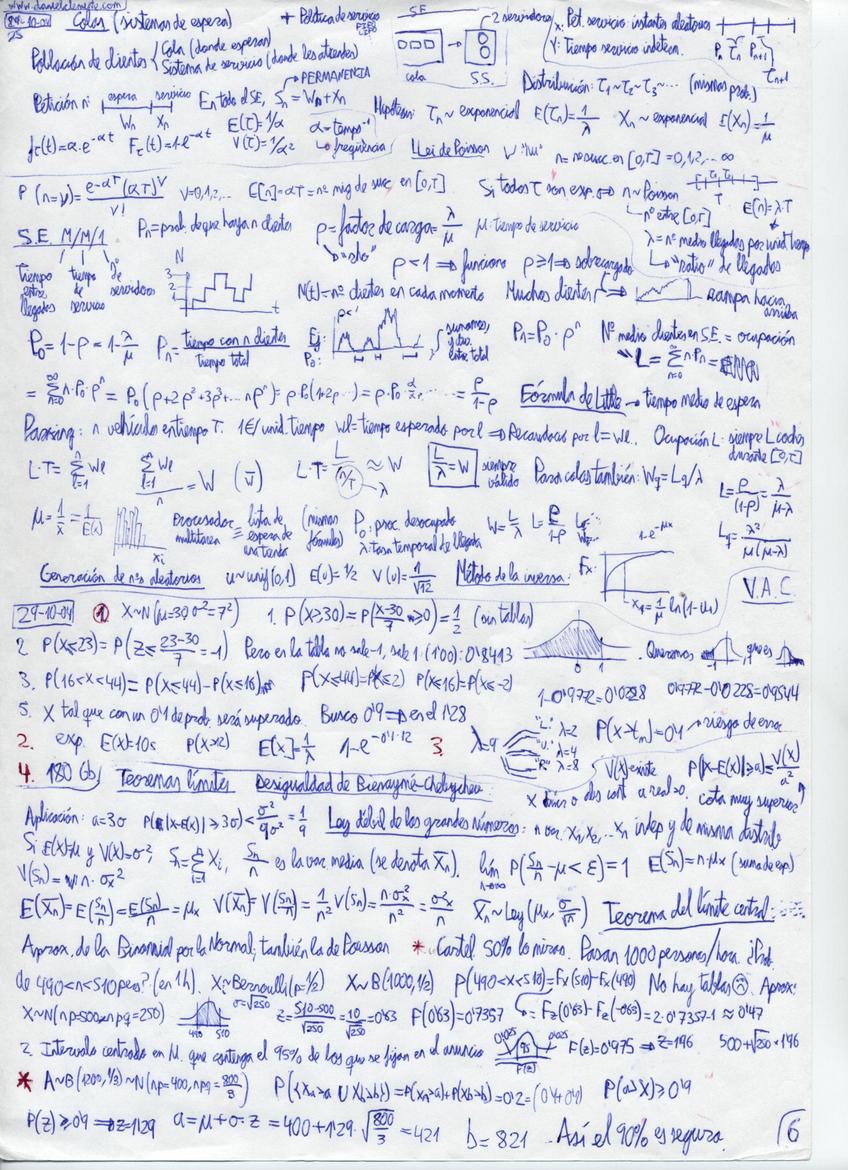 www.danielclemente.com
Colas (sistemas de espera) + Política de servicio S.E. 2 servidores X: Pet. servicio: instantes aleatorios
25
Población de clientes Cola (donde esperan) Y: Tiempo servicio indeterm.
Sistema de servicio (donde les atienden) cola S.S.
PERMANENCIA Distribución: τ1~τ2~τ3~... (mismas prob.)
Petición n: espera servicio En todo el SE, Sn = Wn+Xn Hipótesis: τn ~ exponencial E(τn)=1/λ Xn ~ exponencial E(Xn)=1/μ
Wn Xn
fτ(t)=α·e^-αt Fτ(t)=1-e^-αt E(τ)=1/α V(τ)=1/α² α=tiempo^-1 frequència Llei de Poisson n=nº succ. en [0,T]=0,1,2,... ∞
P(n=v)= e^-αT (αT)^v / v! v=0,1,2,... E[n]=αT=nº mig de succ. en [0,T] Si todos τ son exp. ⇒ n~Poisson
nº entre [0,T] E[n]=λ·T
S.E. M/M/1 Pn=prob. de que hayan n clientes ρ=factor de carga=λ/μ μ: tiempo de servicio λ=nº medio llegadas por unid. tiempo
"rho" "ratio" de llegadas
tiempo entre llegadas tiempo de servicio nº de servidores N ρ<1 ⇒ funciona ρ≥1 ⇒ sobrecargado
N(t)=nº clientes en cada momento Muchos clientes ⇒ rampa hacia arriba
P0=1-ρ=1-λ/μ Pn= tiempo con n clientes / tiempo total Ej: P0: sumamos, y div. entre total Pn=P0·ρ^n Nº medio clientes en S.E. = ocupación
L=Σ n·Pn=
=Σ n·P0·ρ^n = P0(ρ+2ρ²+3ρ³+... nρ^n)=ρ·P0(1+2ρ...)=ρ·P0 ... = ρ/1-ρ Fórmula de Little → tiempo medio de espera
Parking: n vehículos en tiempo T. 1€/unid. tiempo wl=tiempo esperado por l ⇒ Recaudas por l=wl. Ocupación L: siempre L coches durante [0,τ]
L·T=Σ wl Σ wl / n = W (w̄) L·T= L/(n/T) ≈ W λ L/λ=W siempre válido Para colas también: Wq=Lq/λ L=ρ/(1-ρ)=λ/μ-λ
μ=1/x̄=1/E(x) xi Procesador multitarea ≡ lista de espera de una tienda (mismas fórmulas) P0: proc. desocupado λ: tasa temporal de llegada W=L/λ L=ρ/1-ρ 1-e^-μx Lq=λ²/μ(μ-λ)
Generación de nºs aleatorios u~unif(0,1) E(u)=1/2 V(u)=1/√12 Método de la inversa: Fx= V.A.C.
29-10-04 1 X~N(μ=30, σ²=7²) 1. P(X≥30)=P(X-30/7 ≥0)=1/2 (sin tablas)
2. P(X≤23)=P(Z≤23-30/7=-1) Pero en la tabla no sale -1, sale 1 (1'00): 0'8413 0 1 Queremos que es
3. P(16<X<44)=P(X≤44)-P(X≤16) P(X≤44)=P(X≤2) P(X≤16)=P(X≤-2) 1-0'9772=0'0228 0'9772-0'0228=0'9544
5. X tal que con un 0'1 de prob. será superado. Busco 0'9 ⇒ en el 1'28
2. exp. E(X)=10s P(X>12) E[X]=1/λ 1-e^-0'1·12 3. λ=9 "L" λ=2 "U" λ=4 "R" λ=8 P(X>tm)=0'1 → riesgo de error
4. 180 Gb Teoremas límites Desigualdad de Bienaymé-Chebychev: V(X) existe P(|X-E(X)|≥a)≤V(X)/a²
X discr o cont a real>0. cota muy superior
Aplicación: a=3σ P(|X-E(X)|≥3σ)<σ²/9σ²=1/9 Ley débil de los grandes números: n var. X1,X2,...Xn indep y de misma distrib
Si E(X)=μ y V(X)=σ²; Sn=Σ Xi, Sn/n es la var. media (se denota X̄n). lim P(Sn/n-μ<ε)=1 E(Sn)=n·μx (suma de esp.)
V(Sn)=n·σx²
E(X̄n)=E(Sn/n)=E(Sn)/n=μx V(X̄n)=V(Sn/n)=1/n² V(Sn)=n·σx²/n²=σ²x/n X̄n~Ley(μx, σ/√n) Teorema del límite central:
Aprox. de la Binomial por la Normal; también la de Poisson * Cartel. 50% lo miras. Pasan 1000 personas/hora. ¿Prob.
de 490<n<510 pers? (en 1h). Xi~Bernoulli(p=1/2) X~B(1000,1/2) P(490<x<510)=Fx(510)-Fx(490) No hay tablas ☹. Aprox:
X~N(np=500, npq=250) σ=√250 490 500 z=510-500/√250=10/√250=0'63 F(0'63)=0'7357 =Fz(0'63)-Fz(-0'63)=2·0'7357-1≈0'47
2. Intervalo centrado en μ que contenga el 95% de los que se fijan en el anuncio 0'025 95 0'025 F(z) F(z)=0'975 ⇒ z=1'96 500+√250·1'96
* A~B(1200,1/3)~N(np=400, npq=800/3) P({XA>a ∪ XB>b})=P(XA>a)+P(XB>b)=0'2=(0'1+0'1) P(a>X)≥0'9
P(z)≥0'9 ⇒ z=1'29 a=μ+σ·z=400+1'29·√800/3=421 b=821 Así el 90% es seguro. 6